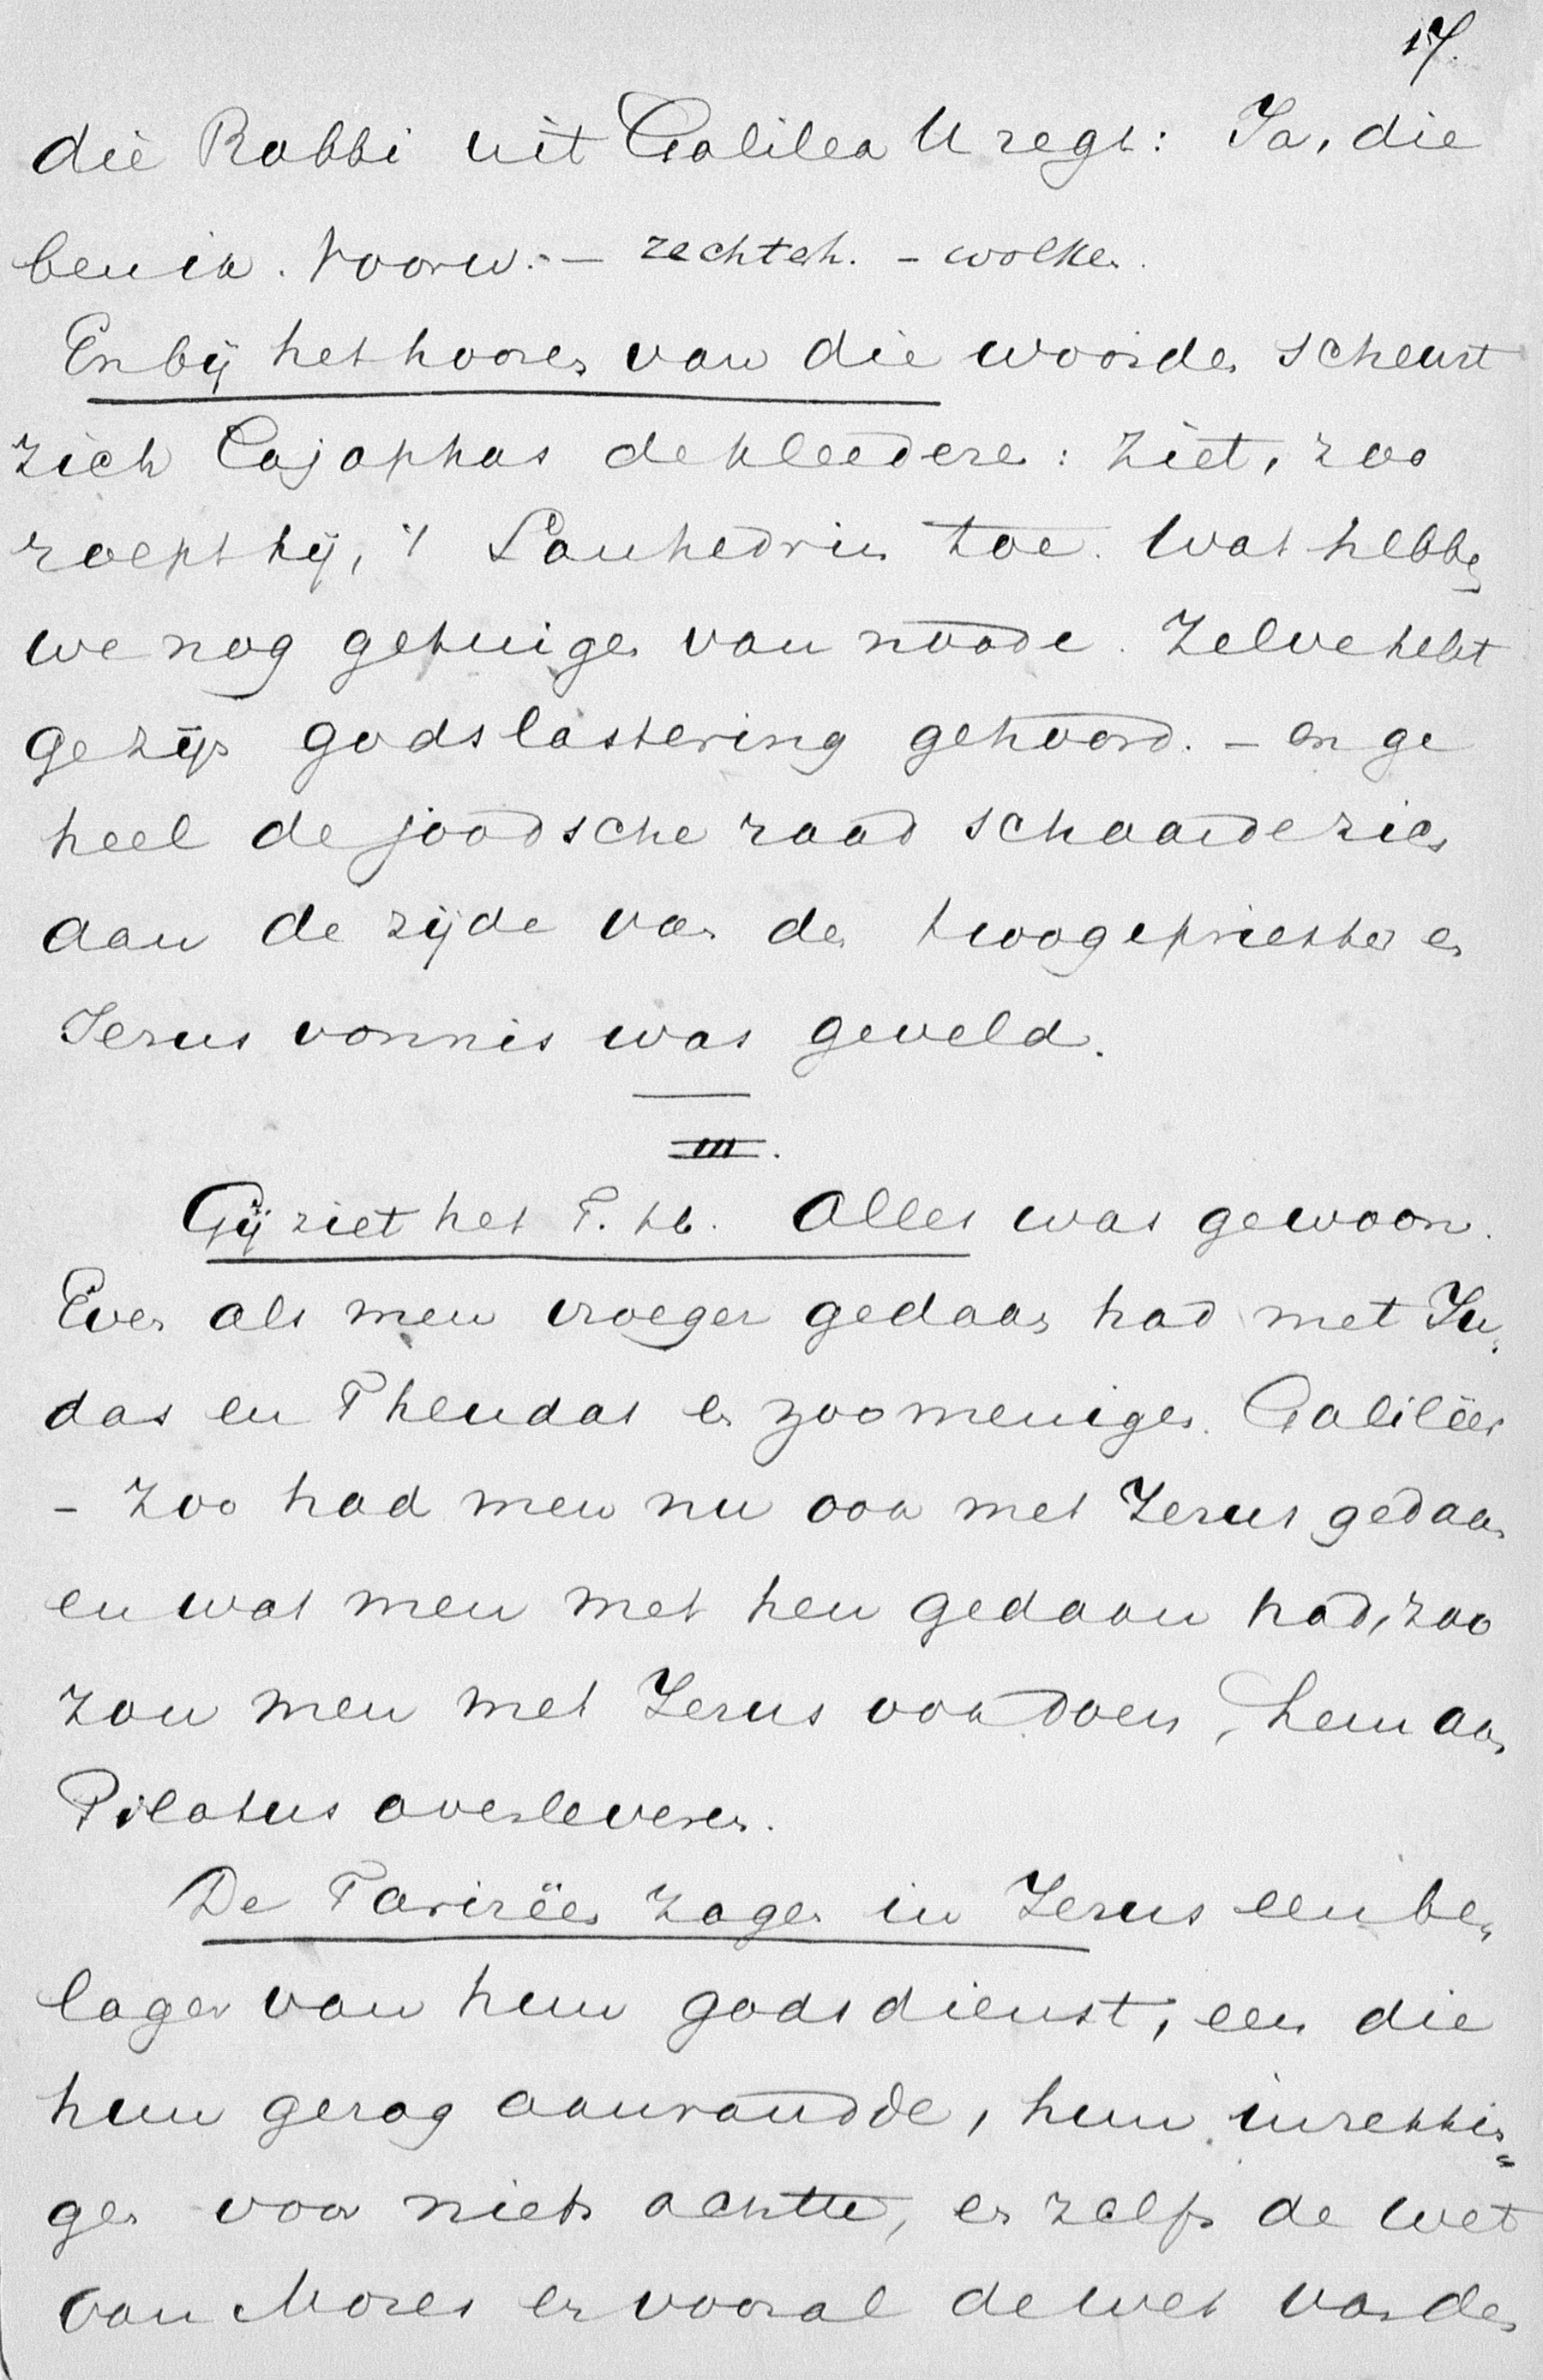 17.
die Rabbi uit Galilea U zegt: Ja, die
ben ik. Voorw. – rechterh. – wolken.
En bij het hooren van die woorden scheurt
zich Cajaphas de kleederen: ziet, zoo
roept hij, 't Sanhedrin toe. Wat hebben
we nog getuigen van noode. Zelve hebt
ge zijn godslastering gehoord. – en ge
heel de joodsche raad schaarde zich
aan de zijde van den hoogepriester en
Jezus vonnis was geveld.
III.
Gij ziet het T. H. Alles was gewoon.
Even als men vroeger gedaan had met Ju-
das en Theudas en zoo menigen Galileër
– zoo had men nu ook met Jezus gedaan
en wat men met hen gedaan had, zoo
zou men met Jezus ook doen, hem aan
Pilatus overleveren.
De Farizëen zagen in Jezus een be-
lager van hun godsdienst, een die
hun gezag aanrandde, hun inzettin=
gen voor niets achtte, en zelfs de wet
van Mozes en vooral de wet van den